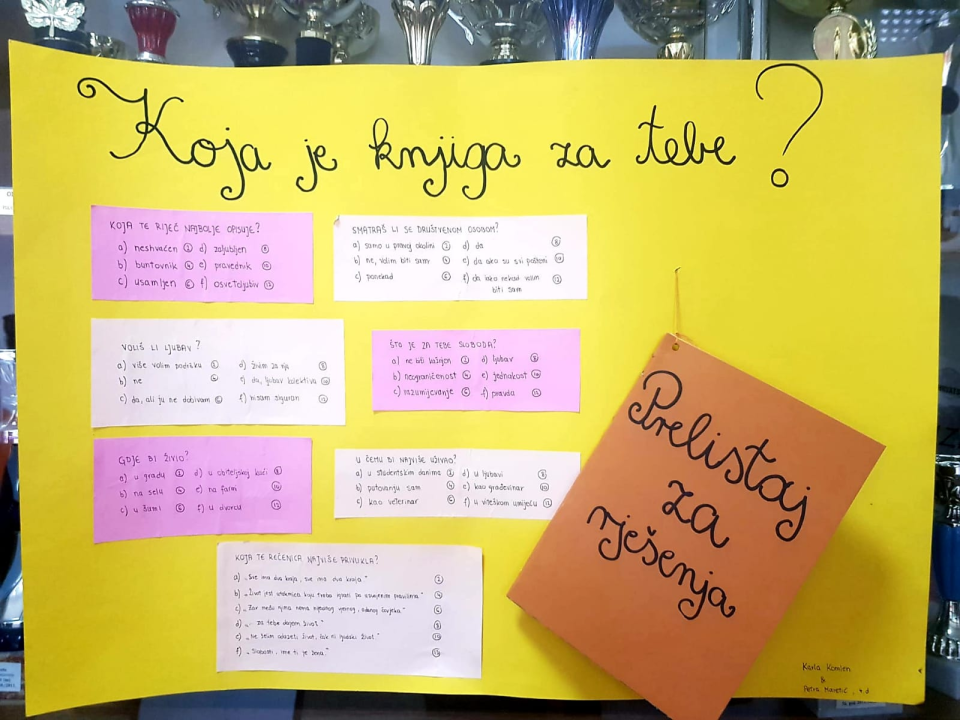 Koja je knjiga za tebe?
KOJA TE RIJEČ NAJBOLJE OPISUJE?
a) neshvaćen 2 d) zaljubljen 8
b) buntovnik 4 e) pravednik 10
c) usamljen 6 f) osvetoljubiv 12
SMATRAŠ LI SE DRUŠTVENOM OSOBOM?
a) samo u pravoj okolini 2 d) da 8
b) ne, volim biti sam 4 e) da ako su svi pošteni 10
c) ponekad 6 f) da iako nekad volim 12
biti sam
VOLIŠ LI LJUBAV?
a) više volim podršku 2 d) živim za nju 8
b) ne 4 e) da, ljubav kolektiva 10
c) da, ali ju ne dobivam 6 f) nisam siguran 12
ŠTO JE ZA TEBE SLOBODA?
a) ne biti lažnjak 2 d) ljubav 8
b) neograničenost 4 e) jednakost 10
c) razumijevanje 6 f) pravda 12
GDJE BI ŽIVIO?
a) u gradu 2 d) u obiteljskoj kući 8
b) na selu 4 e) na farmi 10
c) u šumi 6 f) u dvorcu 12
U ČEMU BI NAJVIŠE UŽIVAO?
a) u studentskim danima 2 d) u ljubavi 8
b) putovanju sam 4 e) kao građevinar 10
c) kao veterinar 6 f) u viteškom umijeću 12
KOJA TE REČENICA NAJVIŠE PRIVUKLA?
a) "Sve ima dva kraja, sve ima dva kraja." 2
b) "Život jest utakmica koju treba igrati po usvojenim pravilima." 4
c) "Zar među njima nema nijednog vjernog, odanog čovjeka" 6
d) "... za tebe dajem život." 8
e) "Ne želim oduzeti život, čak ni ljudski život." 10
f) "Slabosti, ime ti je žena." 12
Prelistaj
za
rješenja
Karla
&
Petra 4.d